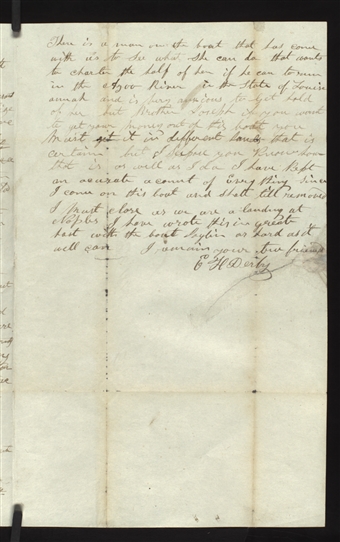 There is a man on the boat that has come
with us to see what she can do that wants
to charter the half of her if he can to run
in the Azoo River in the State of Louisi
annah and is very anxious to get hold
of her but Brother Joseph if you want
to get your money out of this boat you
Must put it in different hands that is
certain but I believe you Know
that is as well as I do I have Kept
an acurate account of Every thing since
I come on this boat and shall till removed
I must close as we are a landing at
Naples I have wrote this in great
hast with the boat as hard as it
well can I remain your true friend
E H Derby